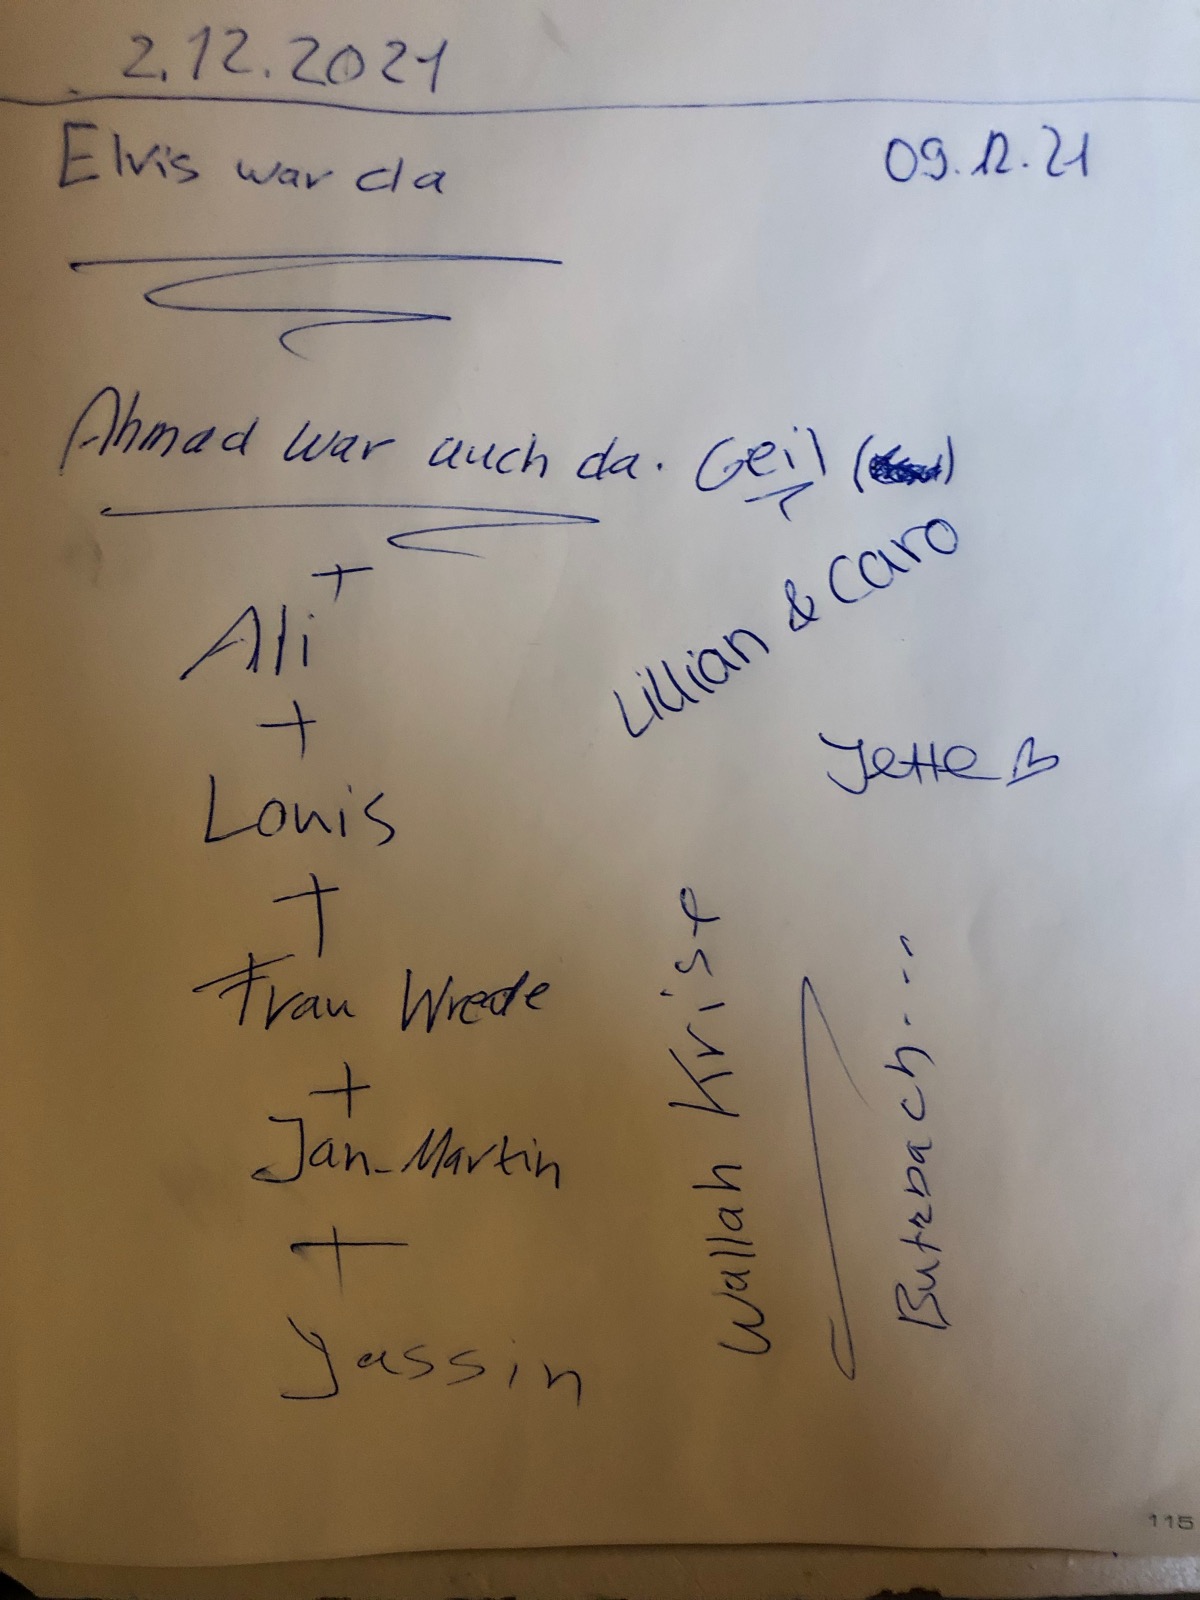 2.12.2021
Elvis war da
09.12.21
Ahmad war auch da. Geil
+
Ali
+
Louis
+
Frau Wrede
+
Jan-Martin
+
Jassin
Lillian & Caro
Jette
Wallah Krise
Butzbach...
115